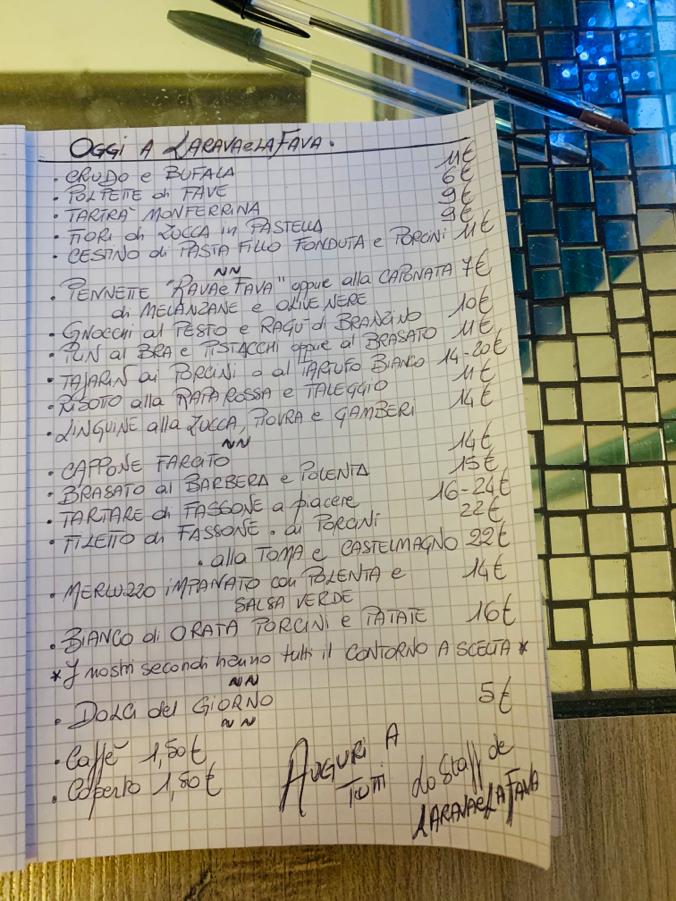 OGGI A LARAVAeLAFAVA.
• CRUDO e BUFALA 11€
• POLPETTE di FAVE 6€
• TARTRA' MONFERRINA 9€
• FIORI di ZUCCA in PASTELLA 9€
• CESTINO di PASTA FILLO FONDUTA e PORCINI 11€
~~
• PENNETTE "RAVAeFAVA" oppure alla CAPONATA 7€
di MELANZANE e OLIVE NERE
• GNOCCHI al PESTO e RAGÙ di BRANZINO 10€
• PLIN al BRA e PISTACCHI oppure al BRASATO 11€
• TAJARIN ai PORCINI o al TARTUFO BIANCO 14-20€
• RISOTTO alla RAPA ROSSA e TALEGGIO 11€
• LINGUINE alla ZUCCA, PIOVRA e GAMBERI 14€
~~
• CAPPONE FARCITO 14€
• BRASATO al BARBERA e POLENTA 15€
• TARTARE di FASSONE a piacere 16-24€
• FILETTO di FASSONE • ai PORCINI 22€
• alla TOMA e CASTELMAGNO 22€
• MERLUZZO IMPANATO con POLENTA e 14€
SALSA VERDE
• BIANCO di ORATA PORCINI e PATATE 16€
* I nostri secondi hanno tutti il CONTORNO A SCELTA *
~~
• DOLCI del GIORNO 5€
~~
• Caffè 1,50€
• Coperto 1,80€
AUGURI A
TUTTI
Lo Staff de
LARAVAeLAFAVA